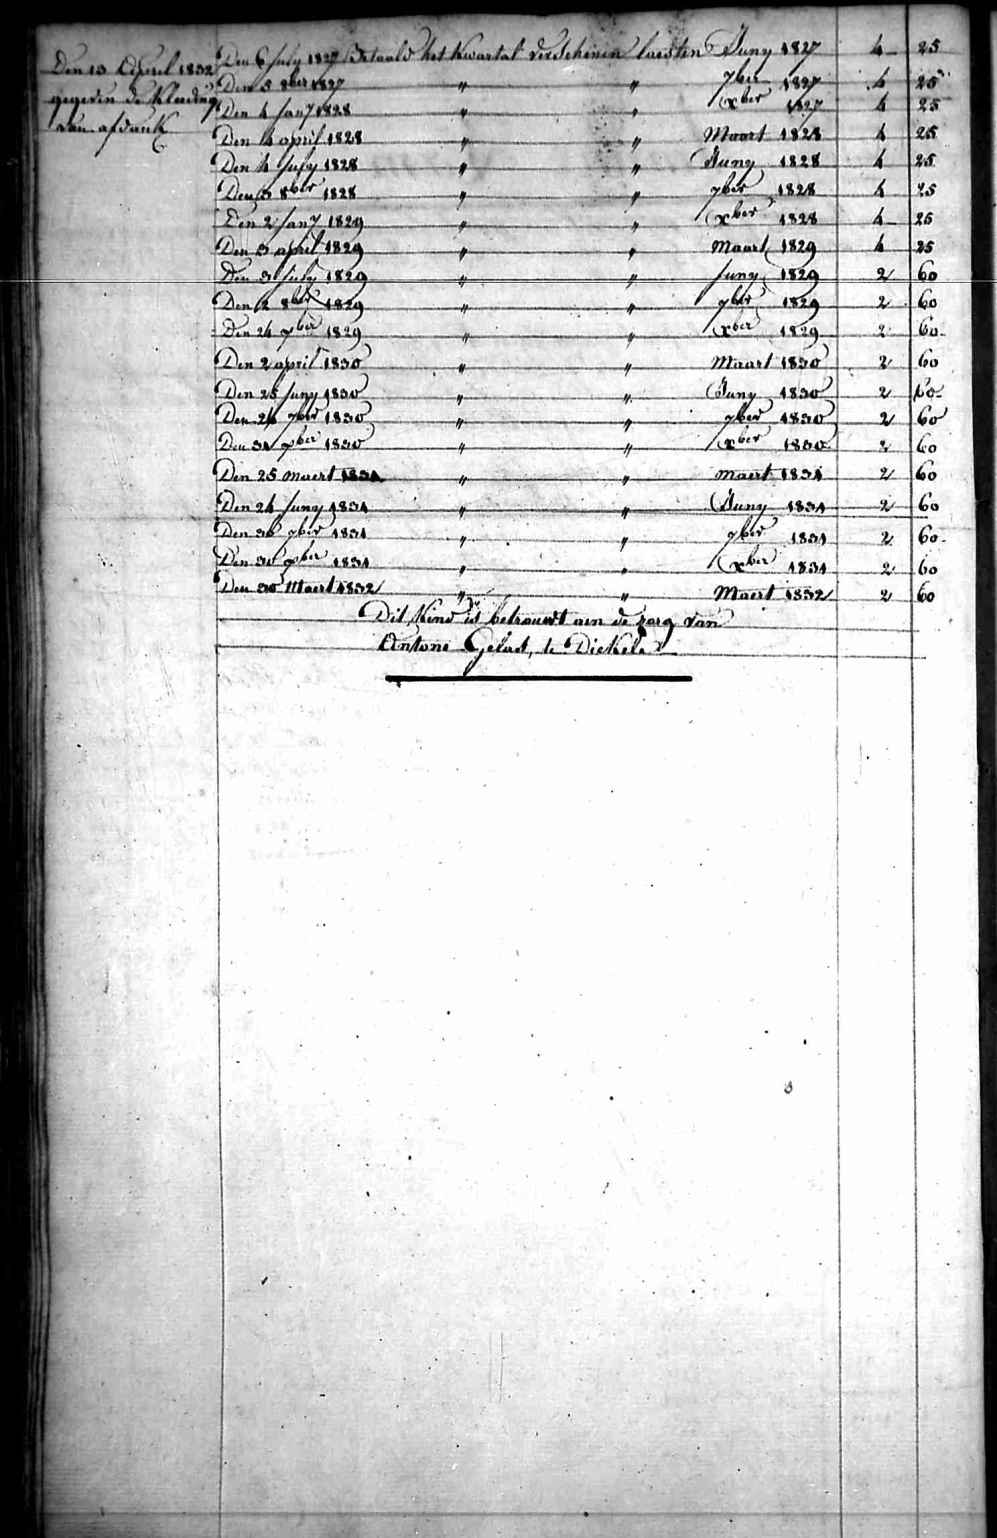 Den 13 April 1832
gegeven de Kleeding
van afdank
Den 6 July 1827 Betaald het Kwartal verscheinen laesten Juny 1827 4 25
Den 5 8ber 1827 " " 7ber 1827 4 25
Den 4 Jany 1828 " " xber 1827 4 25
Den 4 april 1828 " " Maart 1828 4 25
Den 4 July 1828 " " Juny 1828 4 25
Den 3 8ber 1828 " " 7ber 1828 4 25
Den 2 Jany 1829 " " xber 1828 4 25
Den 3 april 1829 " " Maart 1829 4 25
Den 3 July 1829 " " Juny 1829 2 60
Den 2 8ber 1829 " " 7ber 1829 2 60
Den 24 xber 1829 " " xber 1829 2 60
Den 2 april 1830 " " Maart 1830 2 60
Den 25 Juny 1830 " " Juny 1830 2 60
Den 24 7ber 1830 " " 7ber 1830 2 60
Den 31 xber 1830 " " xber 1830 2 60
Den 25 maert 1831 " " maert 1831 2 60
Den 24 Juny 1831 " " Juny 1831 2 60
Den 30 7ber 1831 " " 7ber 1831 2 60
Den 30 xber 1831 " " xber 1831 2 60
Den 30 Maert 1832 " " Maert 1832 2 60
Dit Kind is betrouwt aen de zorg van
Antone Gelaet, te Dickele